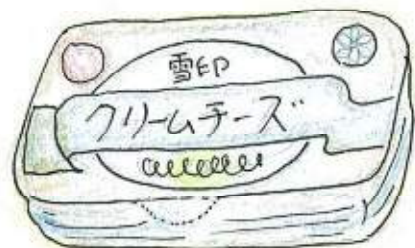 雪印
クリームチーズ